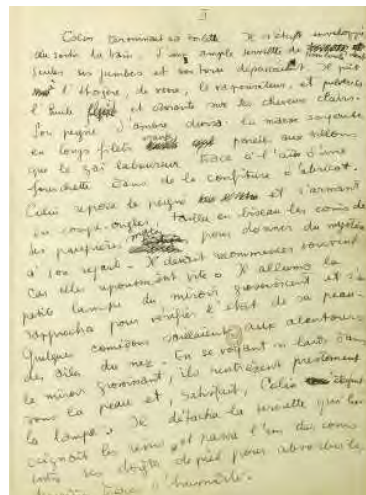 I
Colin terminait sa toilette. Il s'était enveloppé
au sortir du bain, d'une ample serviette de tissu
seules ses jambes et son torse dépassaient. Il prit
à l'étagère, de verre, le vaporisateur, et pulvérisa
l'huile fluide et odorante sur les cheveux clairs.
Son peigne d'ambre divisa la masse soyeuse
en longs filets orange pareils aux sillons
que le gai laboureur trace à l'aide d'une
fourchette dans de la confiture d'abricot.
Colin reposa le peigne et s'armant
du coupe-ongles, tailla en biseau les coins de
ses paupières mates pour donner du mystère
à son regard. Il devait recommencer souvent
car elles repoussaient vite. Il alluma la
petite lampe du miroir grossissant et s'en
rapprocha pour vérifier l'état de sa peau.
Quelques comédons saillaient aux alentours
des ailes du nez. En se voyant si laids dans
le miroir grossissant, ils rentrèrent prestement
sous la peau et, satisfait, Colin éteignit
la lampe. Il détacha la serviette qui lui
ceignait les reins et passa l'un des coins
entre ses doigts de pied pour absorber les
traces d'humidité.